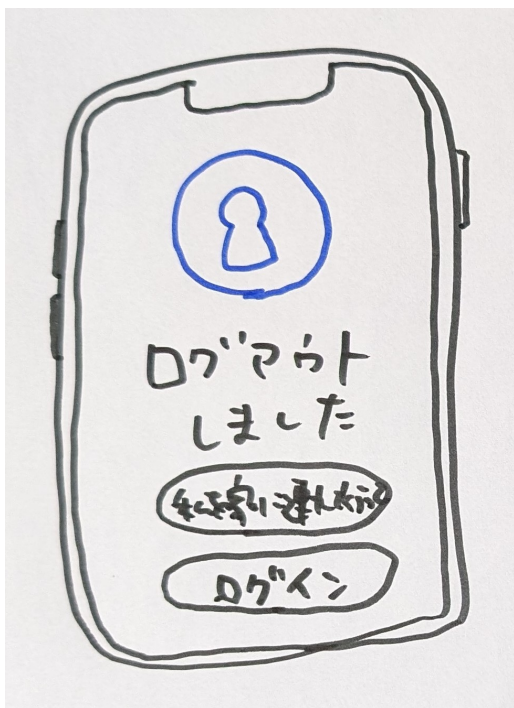 ログアウト
しました
ログイン